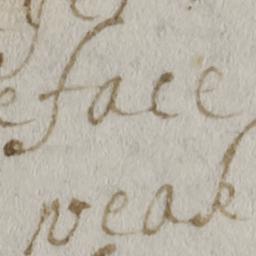 face
weak